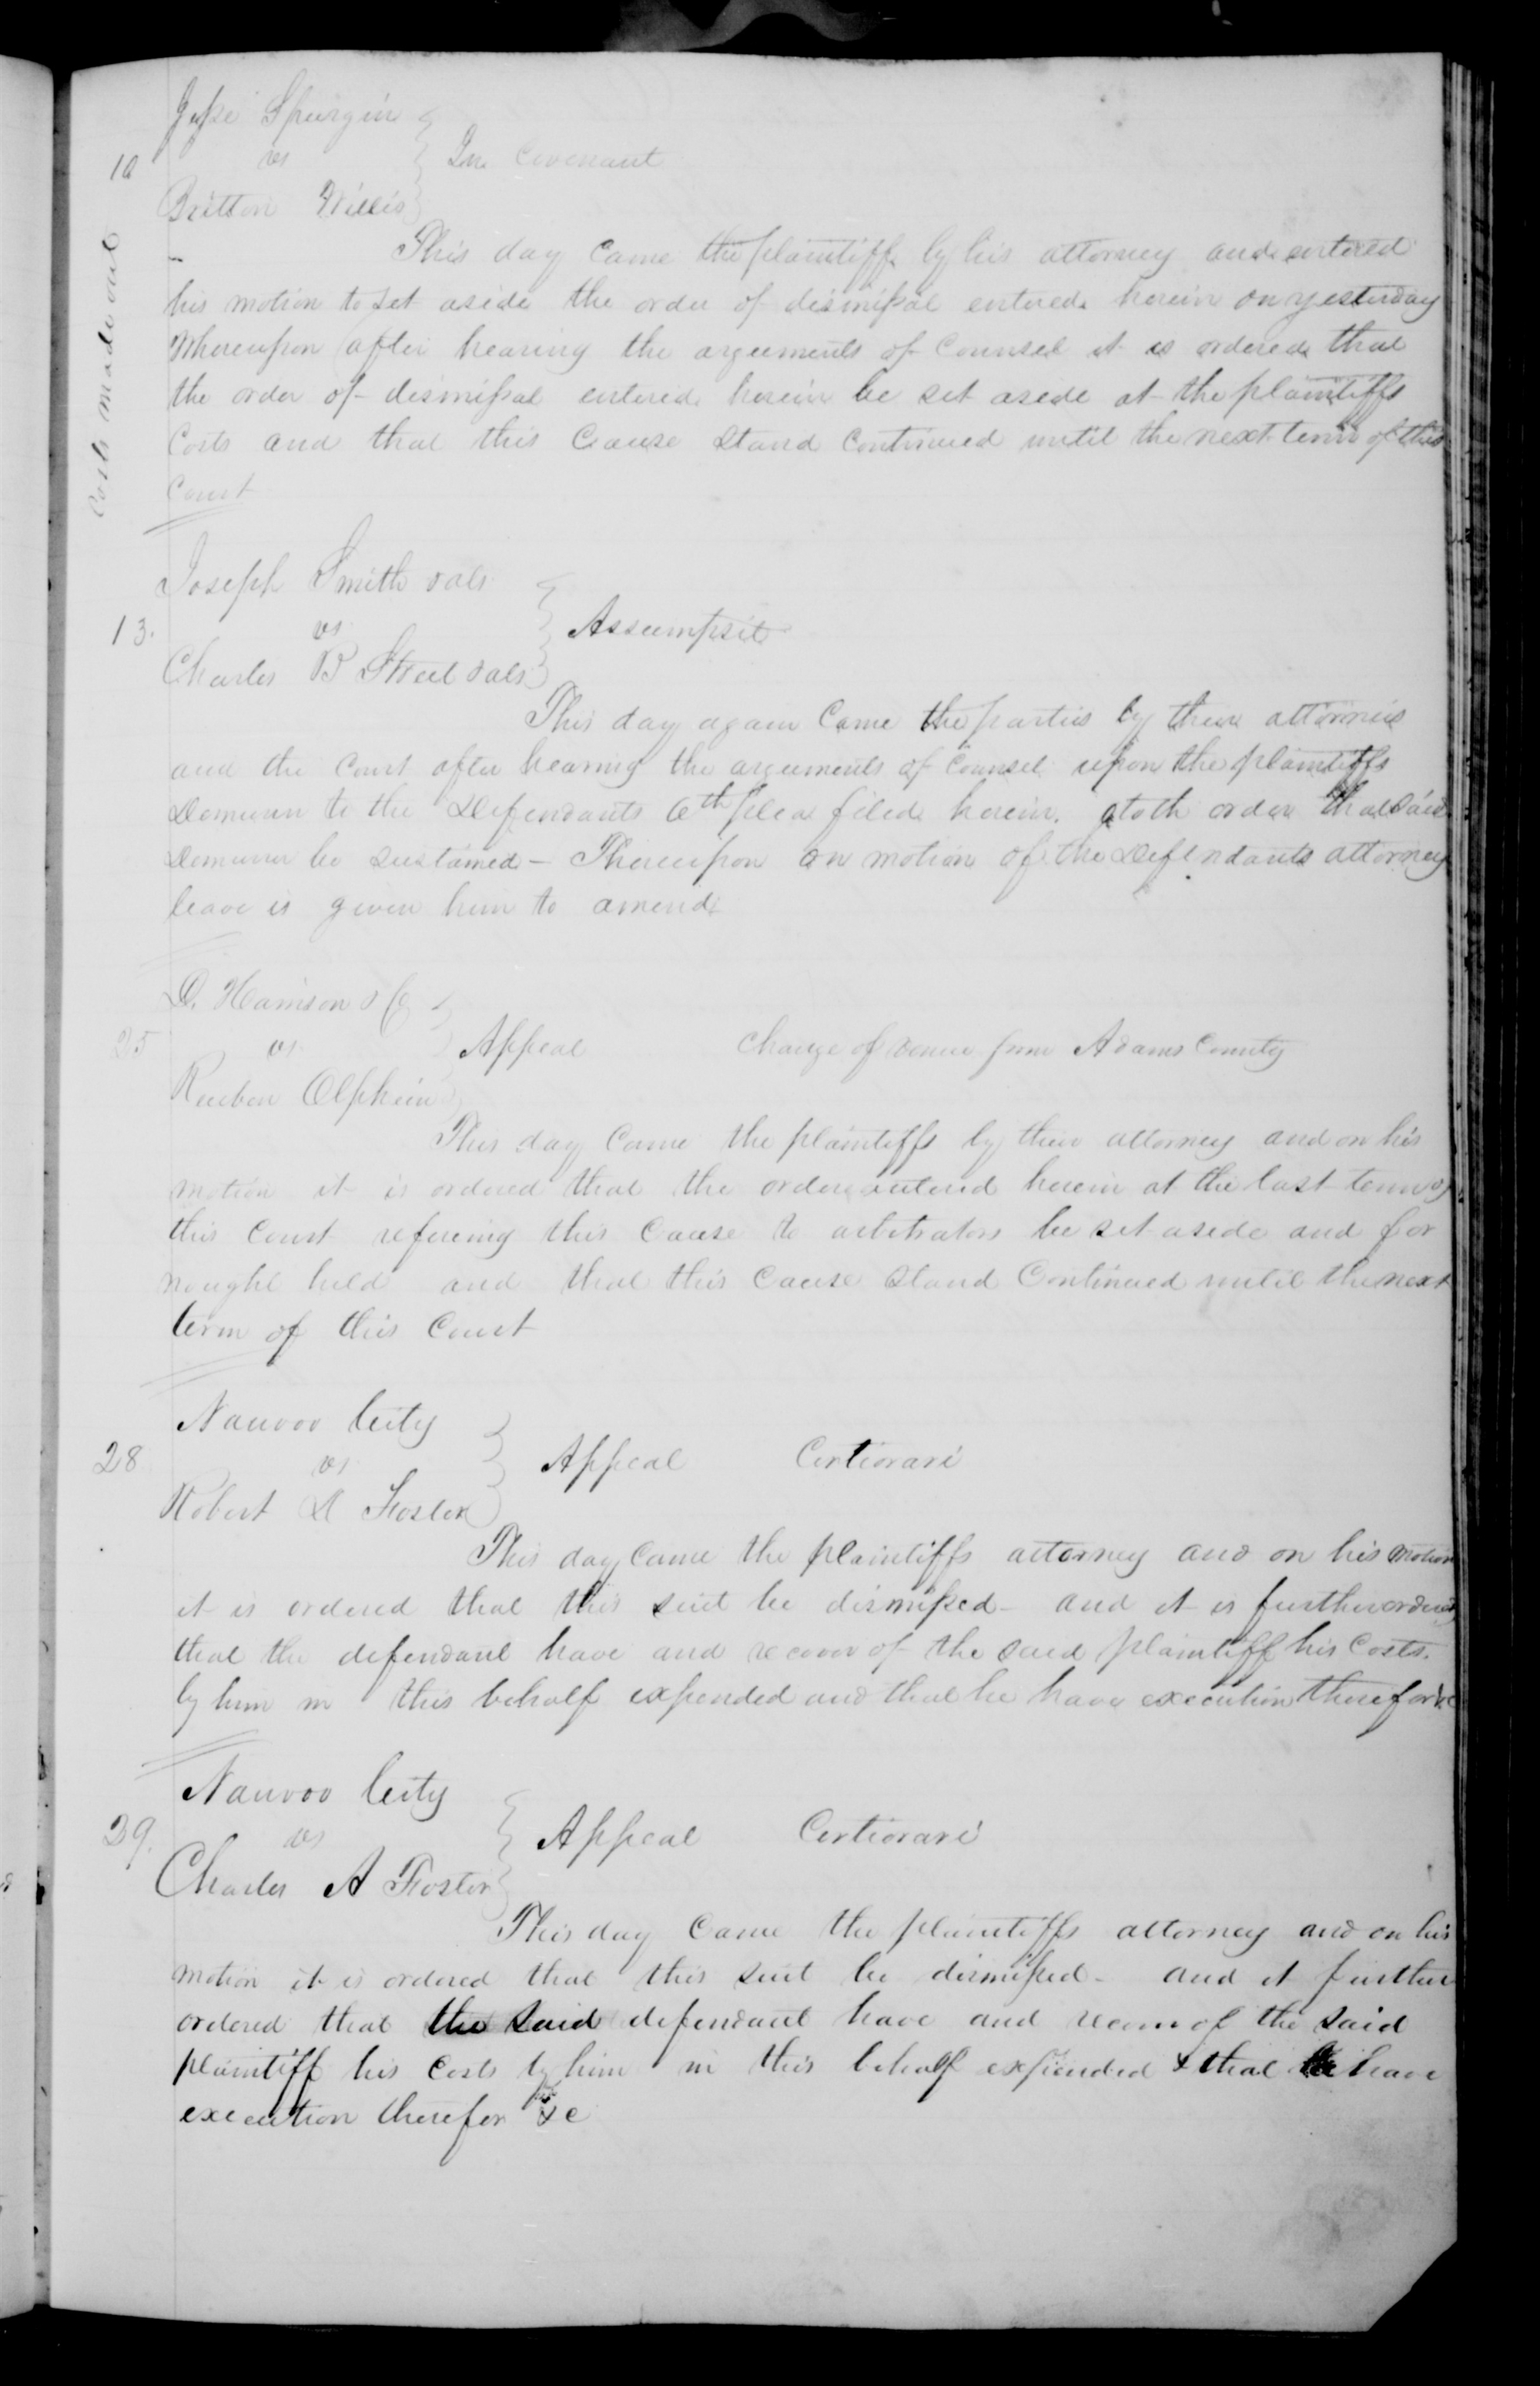 Jesse Spurgin
10 vs } In Covenant
Britton Willis
Costs made out
This day came the plaintiff by his attorney and entered
his motion to set aside the order of dismissal entered herein on yesterday
Whereupon after hearing the arguments of Counsel it is ordered that
the order of dismissal entered herein be set aside at the plaintiffs
Costs and that this Cause Stand Continued until the next term of this
Court
Joseph Smith & als
13. vs } Assumpsit
Charles B Street & als
This day again Came the parties by their attornies
and the Court after hearing the arguments of Counsel upon the plaintiffs
Demurrer to the Defendants 6th plea filed herein. doth order that said
Demurrer be sustained – Thereupon on motion of the Defendants attorney
leave is given him to amend
D. Harrison & Co
25 vs } Appeal Change of venue from Adams County
Reuben
This day Came the plaintiffs by their attorney and on his
motion it is ordered that the order entered herein at the last term of
this Court refering this Cause to arbitrators be set aside and for
nought held and that this Cause Stand Continued until the next
term of this Court
Nauvoo City
28 vs } Appeal Certiorari
Robert D Foster
This day Came the plaintiffs attorney and on his motion
it is ordered that this suit be dismissed – and it is further ordered
that the defendant have and recover of the said plaintiff his Costs.
by him in this behalf expended and that he have execution therefor &c
Nauvoo City
29. vs } Appeal Certiorari
Charles A Foster
This day Came the plaintiffs attorney and on his
motion it is ordered that this suit be dismissed – and it further
ordered that the said defendant have and recover of the said
plaintiff his Costs by him in this behalf expended & that he have
execution therefor &c